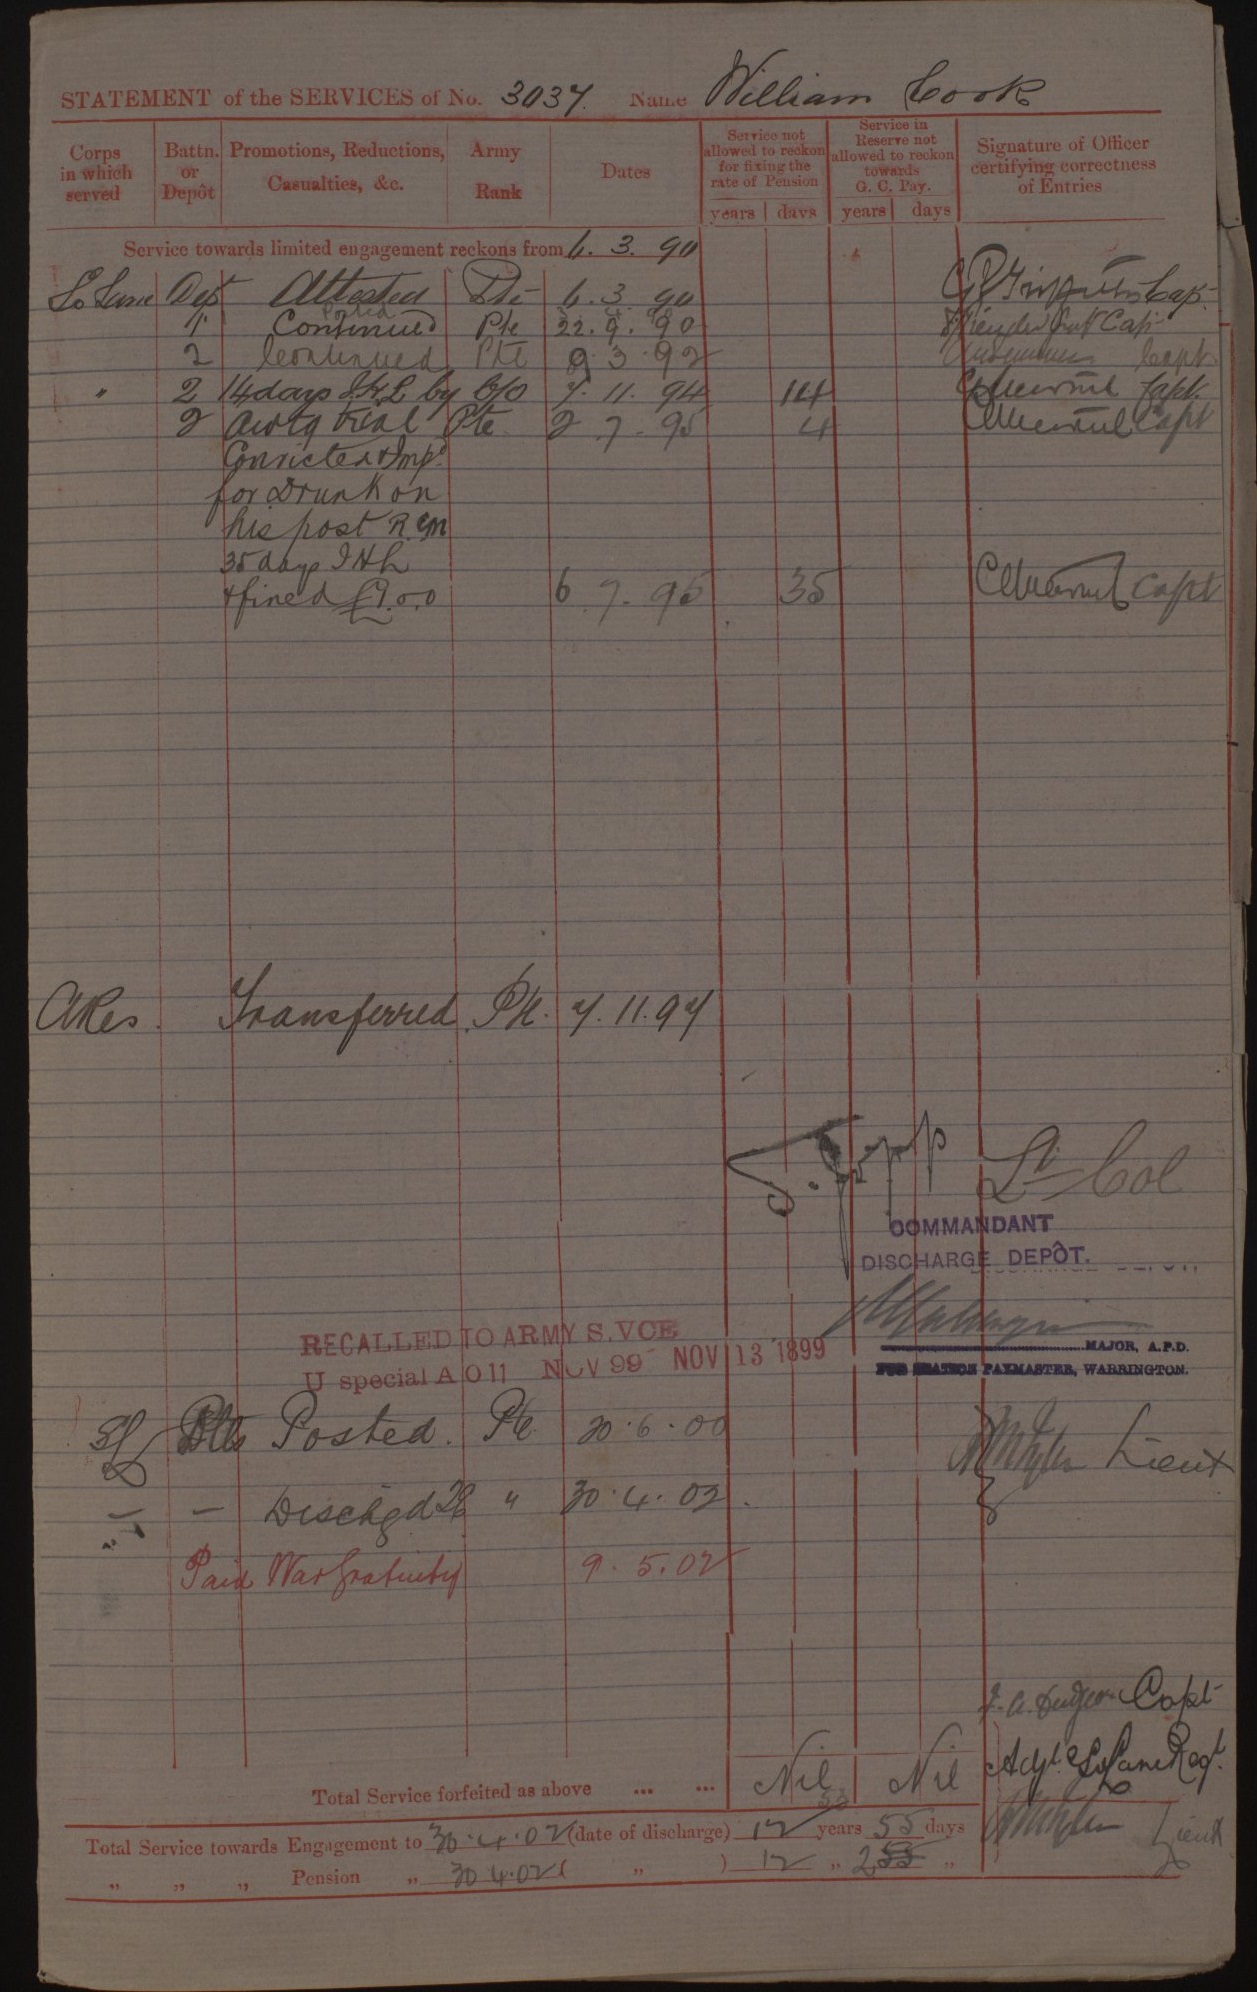 STATEMENT of the SERVICES of No. 3037. Name William Cook
Corps in which served
Battn. or Depôt
Promotions, Reductions, Casualties, &c.
Army Rank
Dates
Service not allowed to reckon for fixing the rate of Pension
years days
Service in Reserve not allowed to reckon towards G. C. Pay.
years days
Signature of Officer certifying correctness of Entries
Service towards limited engagement reckons from 6. 3. 90
So Lanc Dep Attested Pte 6. 3. 90 Capt
Posted
1 Continued Pte 22. 9. 90 Capt
2 Continued Pte 9. 3. 92 Capt
" 2 14 days I.H.L by C/O 7. 11. 94 14 Capt
2 Awtg trial Pte 2. 7. 95 4 Capt
Convicted & Impd
for Drunk on
his post R.CM
35 days IHL
& fined £1.0.0 6. 7. 95 35 Capt
ARes. Transferred Pte. 7. 11. 97
Lt Col
COMMANDANT
DISCHARGE DEPÔT.
RECALLED TO ARMY S.VCE
U special A O 11 NOV 99 NOV 13 1899
MAJOR, A.P.D.
FOR STATION PAYMASTER, WARRINGTON.
SL Posted. Pte 30. 6. 00 Lieut
" – Dischgd " 30. 4. 02.
Paid War Gratuity 9. 5. 02
Capt
Adjt S. Lanc Regt.
Total Service forfeited as above ... ... Nil Nil
Total Service towards Engagement to 30. 4. 02 (date of discharge) 12 years 55 days
Lieut
" " " Pension " 30 4. 02 ( " ) 12 " "